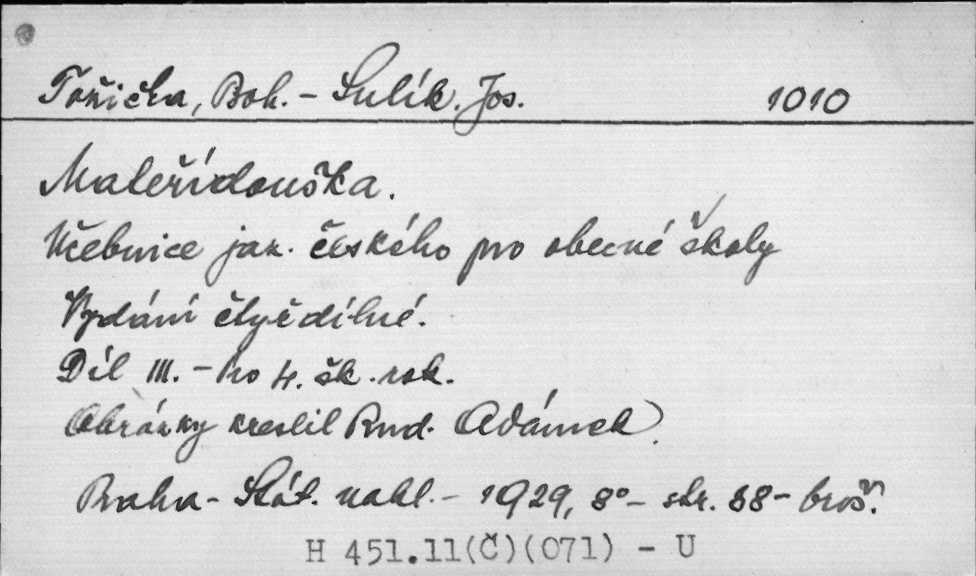 Tožička, Boh. - Sulík, Jos. 1010
Mateřídouška.
Učebnice jaz. českého pro obecné školy
Vydání čtyřdílné.
Díl III. - Pro 4. šk. rok.
Obrázky kreslil Rud. Adámek.
Praha - Stát. nakl. - 1929, 8° - str. 88 - brož.
H 451.11(Č)(071) - U